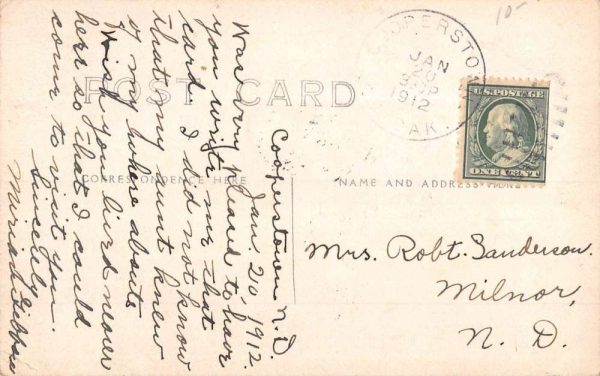 10-
COOPERSTO
JAN
20
P
1912
AK.
U.S. POSTAGE
ONE CENT
POST CARD
CORRESPONDENCE HERE
NAME AND ADDRESS HERE
Cooperstown N.D.
Jan. 20, 1912.
Was very pleased to have
you write me that
card. I did not know
that my aunt knew
of my where abouts
Wish you lived nearer
here so that I could
come to visit you.
Sincerely
Mrs. Robt. Sanderson.
Milnor,
N. D.